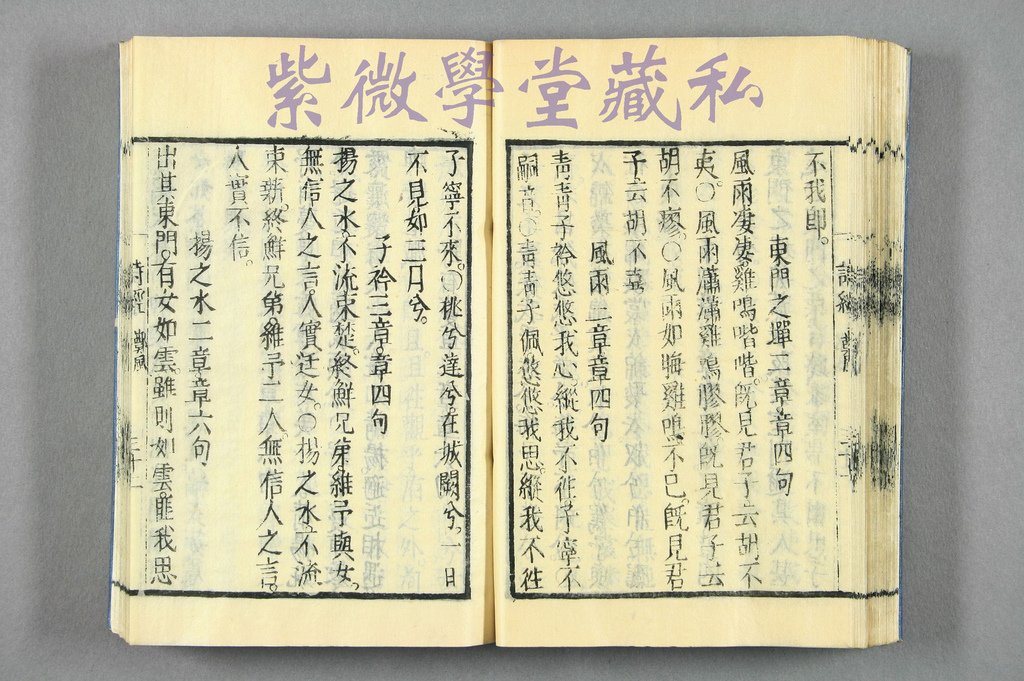 私藏堂學微紫
不我卽。
東門之墠二章章四句
風雨凄凄。雞鳴喈喈。旣見君子。云胡不
夷。○風雨瀟瀟。雞鳴膠膠。旣見君子。云
胡不瘳。○風雨如晦。雞鳴不已。旣見君
子。云胡不喜。
風雨三章章四句
青青子衿。悠悠我心。縱我不徃。子寧不
嗣音。○青青子佩。悠悠我思。縱我不徃
子寧不來。○桃兮達兮。在城闕兮。一日
不見。如三月兮。
子衿三章章四句
揚之水。不流束楚。終鮮兄弟。維予與女。
無信人之言。人實迋女。○揚之水。不流
束薪。終鮮兄弟。維予二人。無信人之言。
人實不信。
揚之水二章章六句、
出其東門。有女如雲。雖則如雲。匪我思
詩經
鄭風